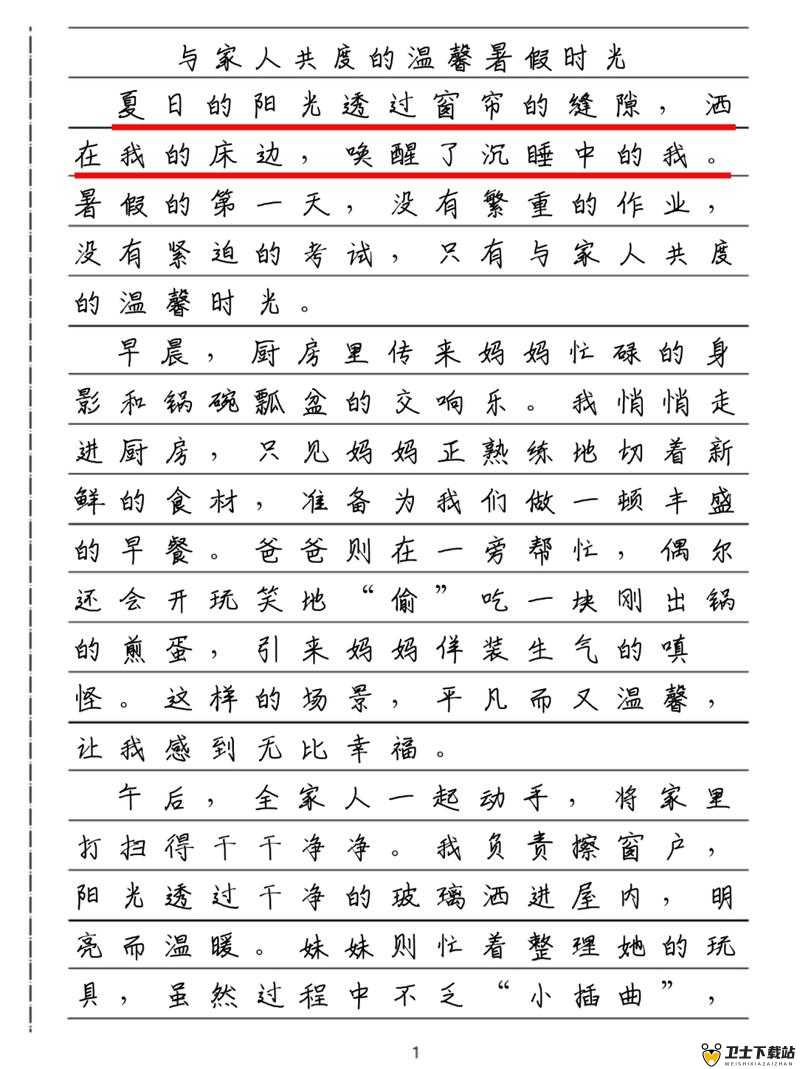 与家人共度的温馨暑假时光
夏日的阳光透过窗帘的缝隙，洒
在我的床边，唤醒了沉睡中的我。
暑假的第一天，没有繁重的作业，
没有紧迫的考试，只有与家人共度
的温馨时光。
早晨，厨房里传来妈妈忙碌的身
影和锅碗瓢盆的交响乐。我悄悄走
进厨房，只见妈妈正熟练地切着新
鲜的食材，准备为我们做一顿丰盛
的早餐。爸爸则在一旁帮忙，偶尔
还会开玩笑地“偷”吃一块刚出锅
的煎蛋，引来妈妈佯装生气的嗔
怪。这样的场景，平凡而又温馨，
让我感到无比幸福。
午后，全家人一起动手，将家里
打扫得干干净净。我负责擦窗户，
阳光透过干净的玻璃洒进屋内，明
亮而温暖。妹妹则忙着整理她的玩
具，虽然过程中不乏“小插曲”，
1
卫士下载站
WEISHIXIAZAIZHAN